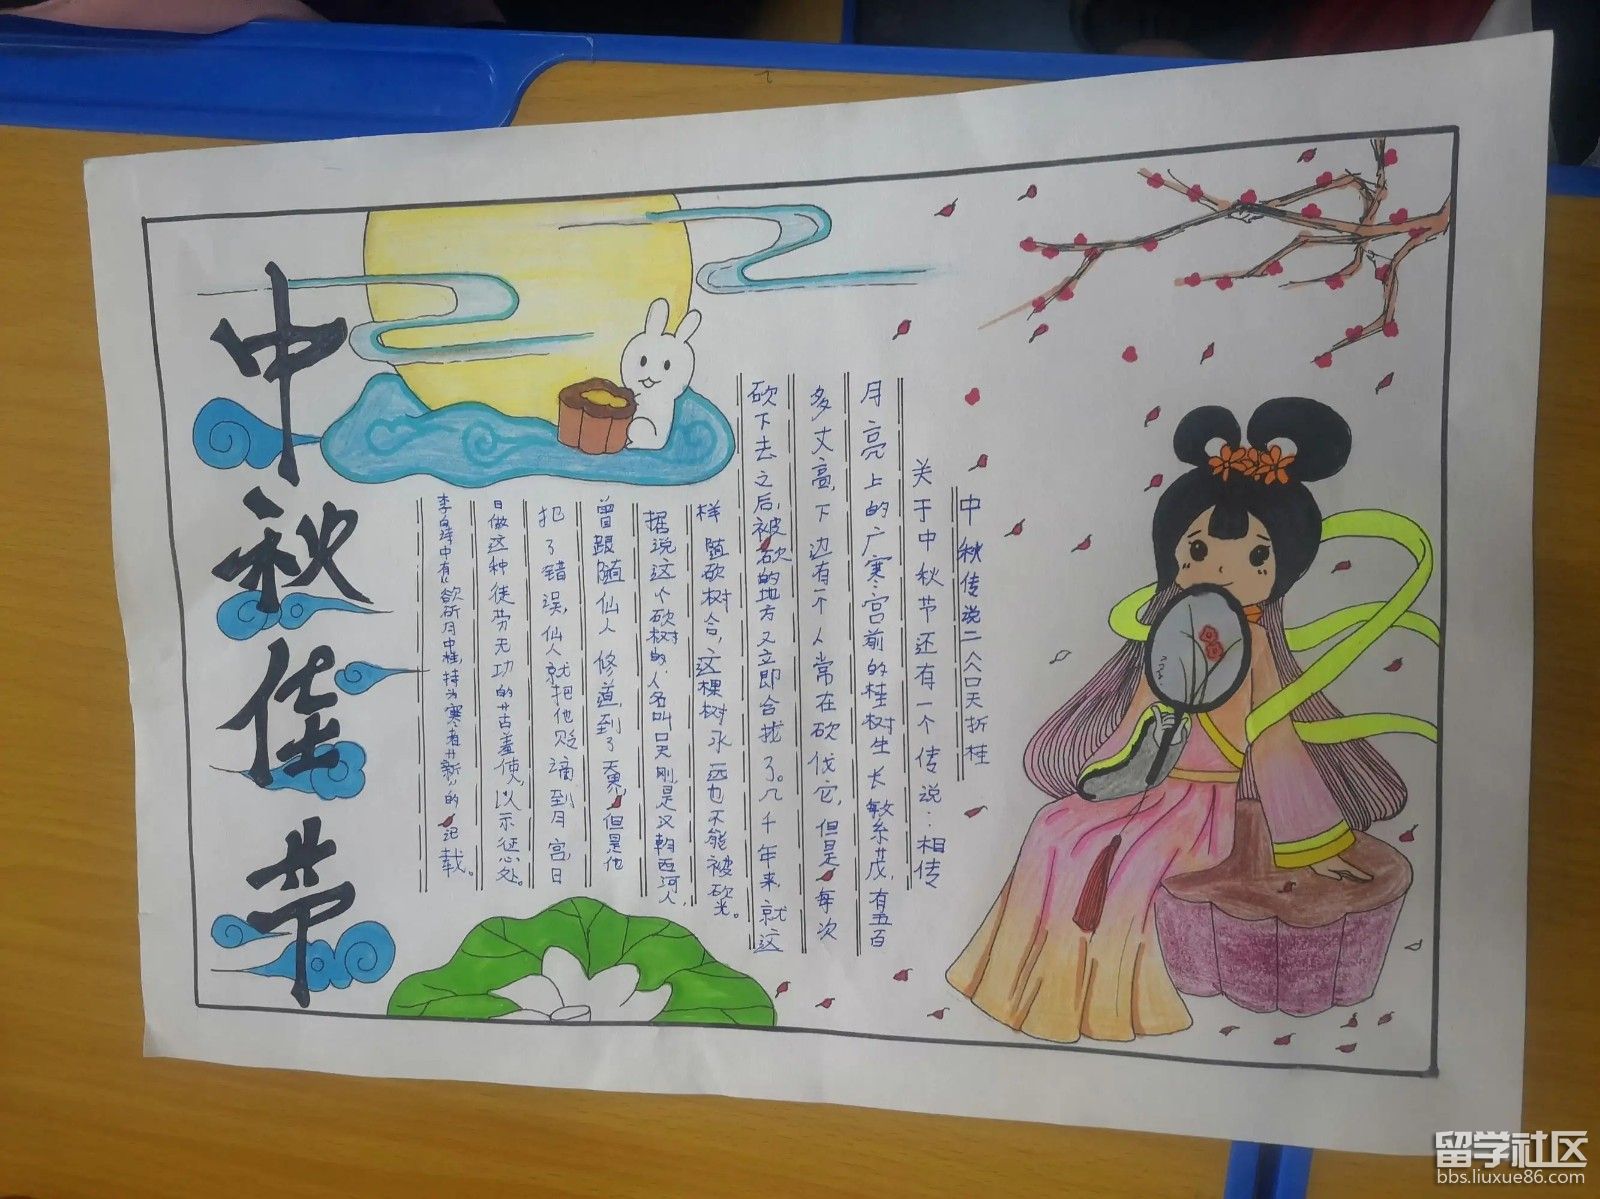 中秋佳节
中秋传说二 吴天折桂
关于中秋节还有一个传说：相传
月亮上的广寒宫前的桂树生长繁茂，有五百
多丈高，下边有一个人常在砍伐它，但是每次
砍下去之后，被砍的地方又立即合拢了。几千年来，就这
样随砍树合，这棵树永远也不能被砍光。
据说这个砍树的人名叫吴刚是汉朝西河人，
曾跟随仙人修道，到了天界，但是他
犯了错误，仙人就把他贬谪到月宫，日
日做这种徒劳无功的苦差使，以示惩处。
李白诗中有“欲斫月中桂，持为寒者薪”的记载。
留学社区
bbs.liuxue86.com